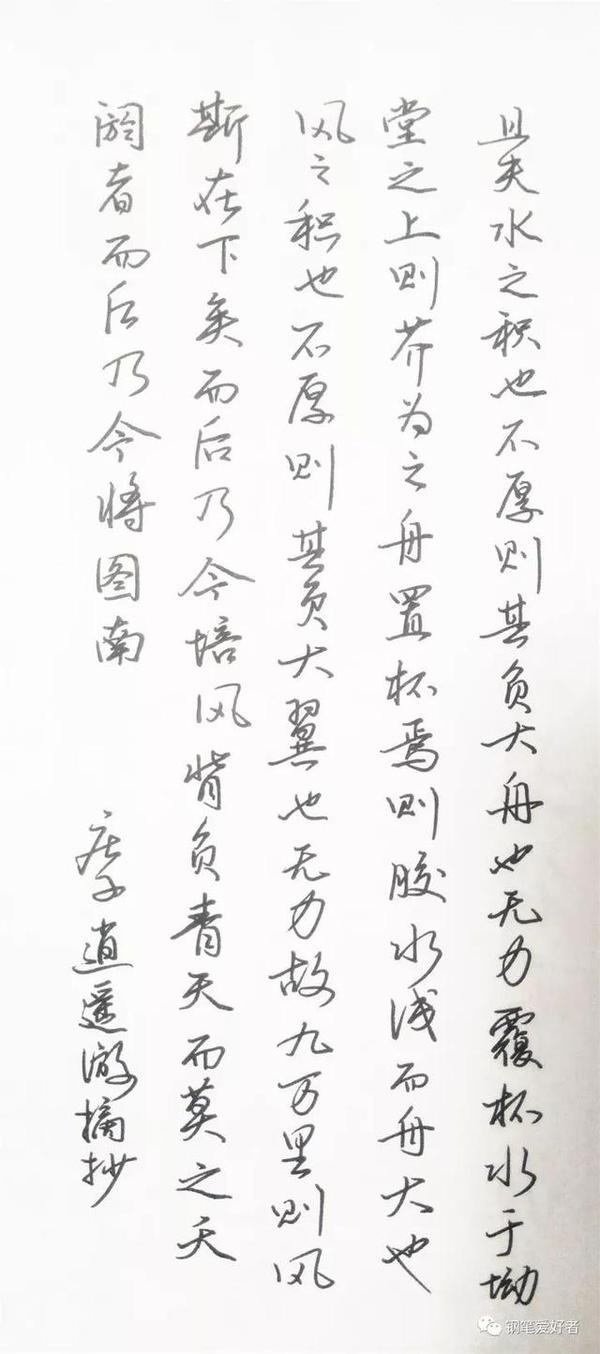 且夫水之积也不厚则其负大舟也无力覆杯水于坳
堂之上则芥为之舟置杯焉则胶水浅而舟大也
风之积也不厚则其负大翼也无力故九万里则风
斯在下矣而后乃今培风背负青天而莫之夭
阏者而后乃今将图南
庄子逍遥游摘抄
钢笔爱好者